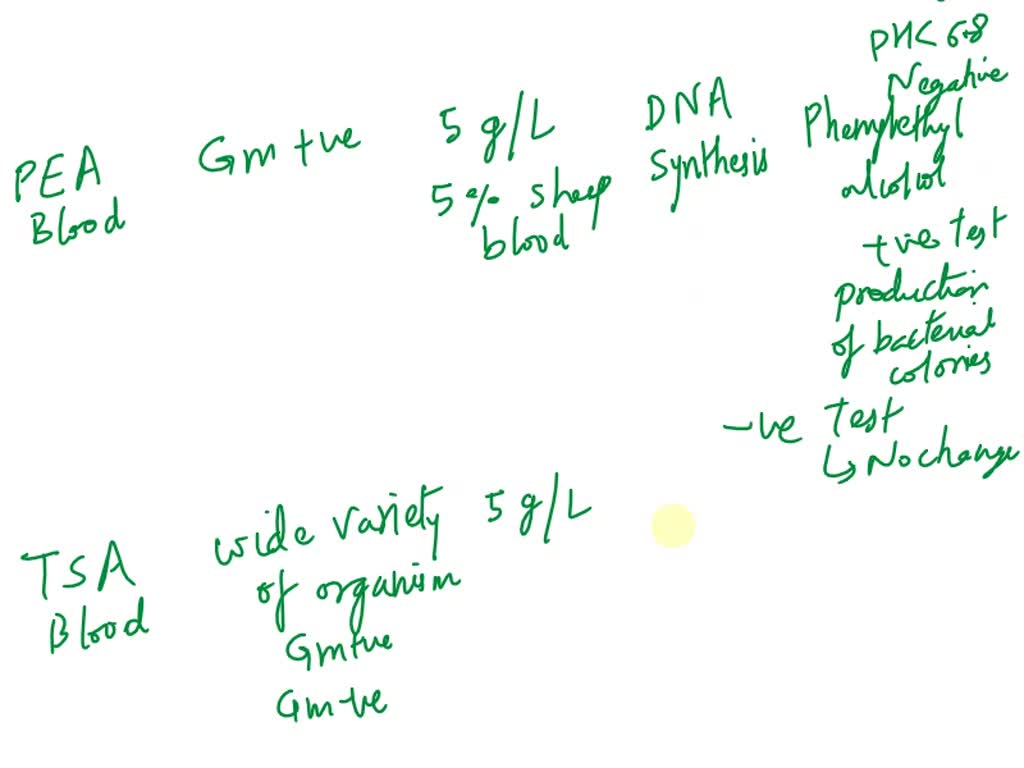 PHC 6.8
Negative
PEA
Blood
Gm +ve
5 g/L
5% sheep
blood
DNA
Synthesis
Phenylethyl
alcohol
+ve test
production
of bacterial
colonies
-ve Test
↳ No change
TSA
Blood
wide variety
of organism
Gm+ve
Gm-ve
5 g/L